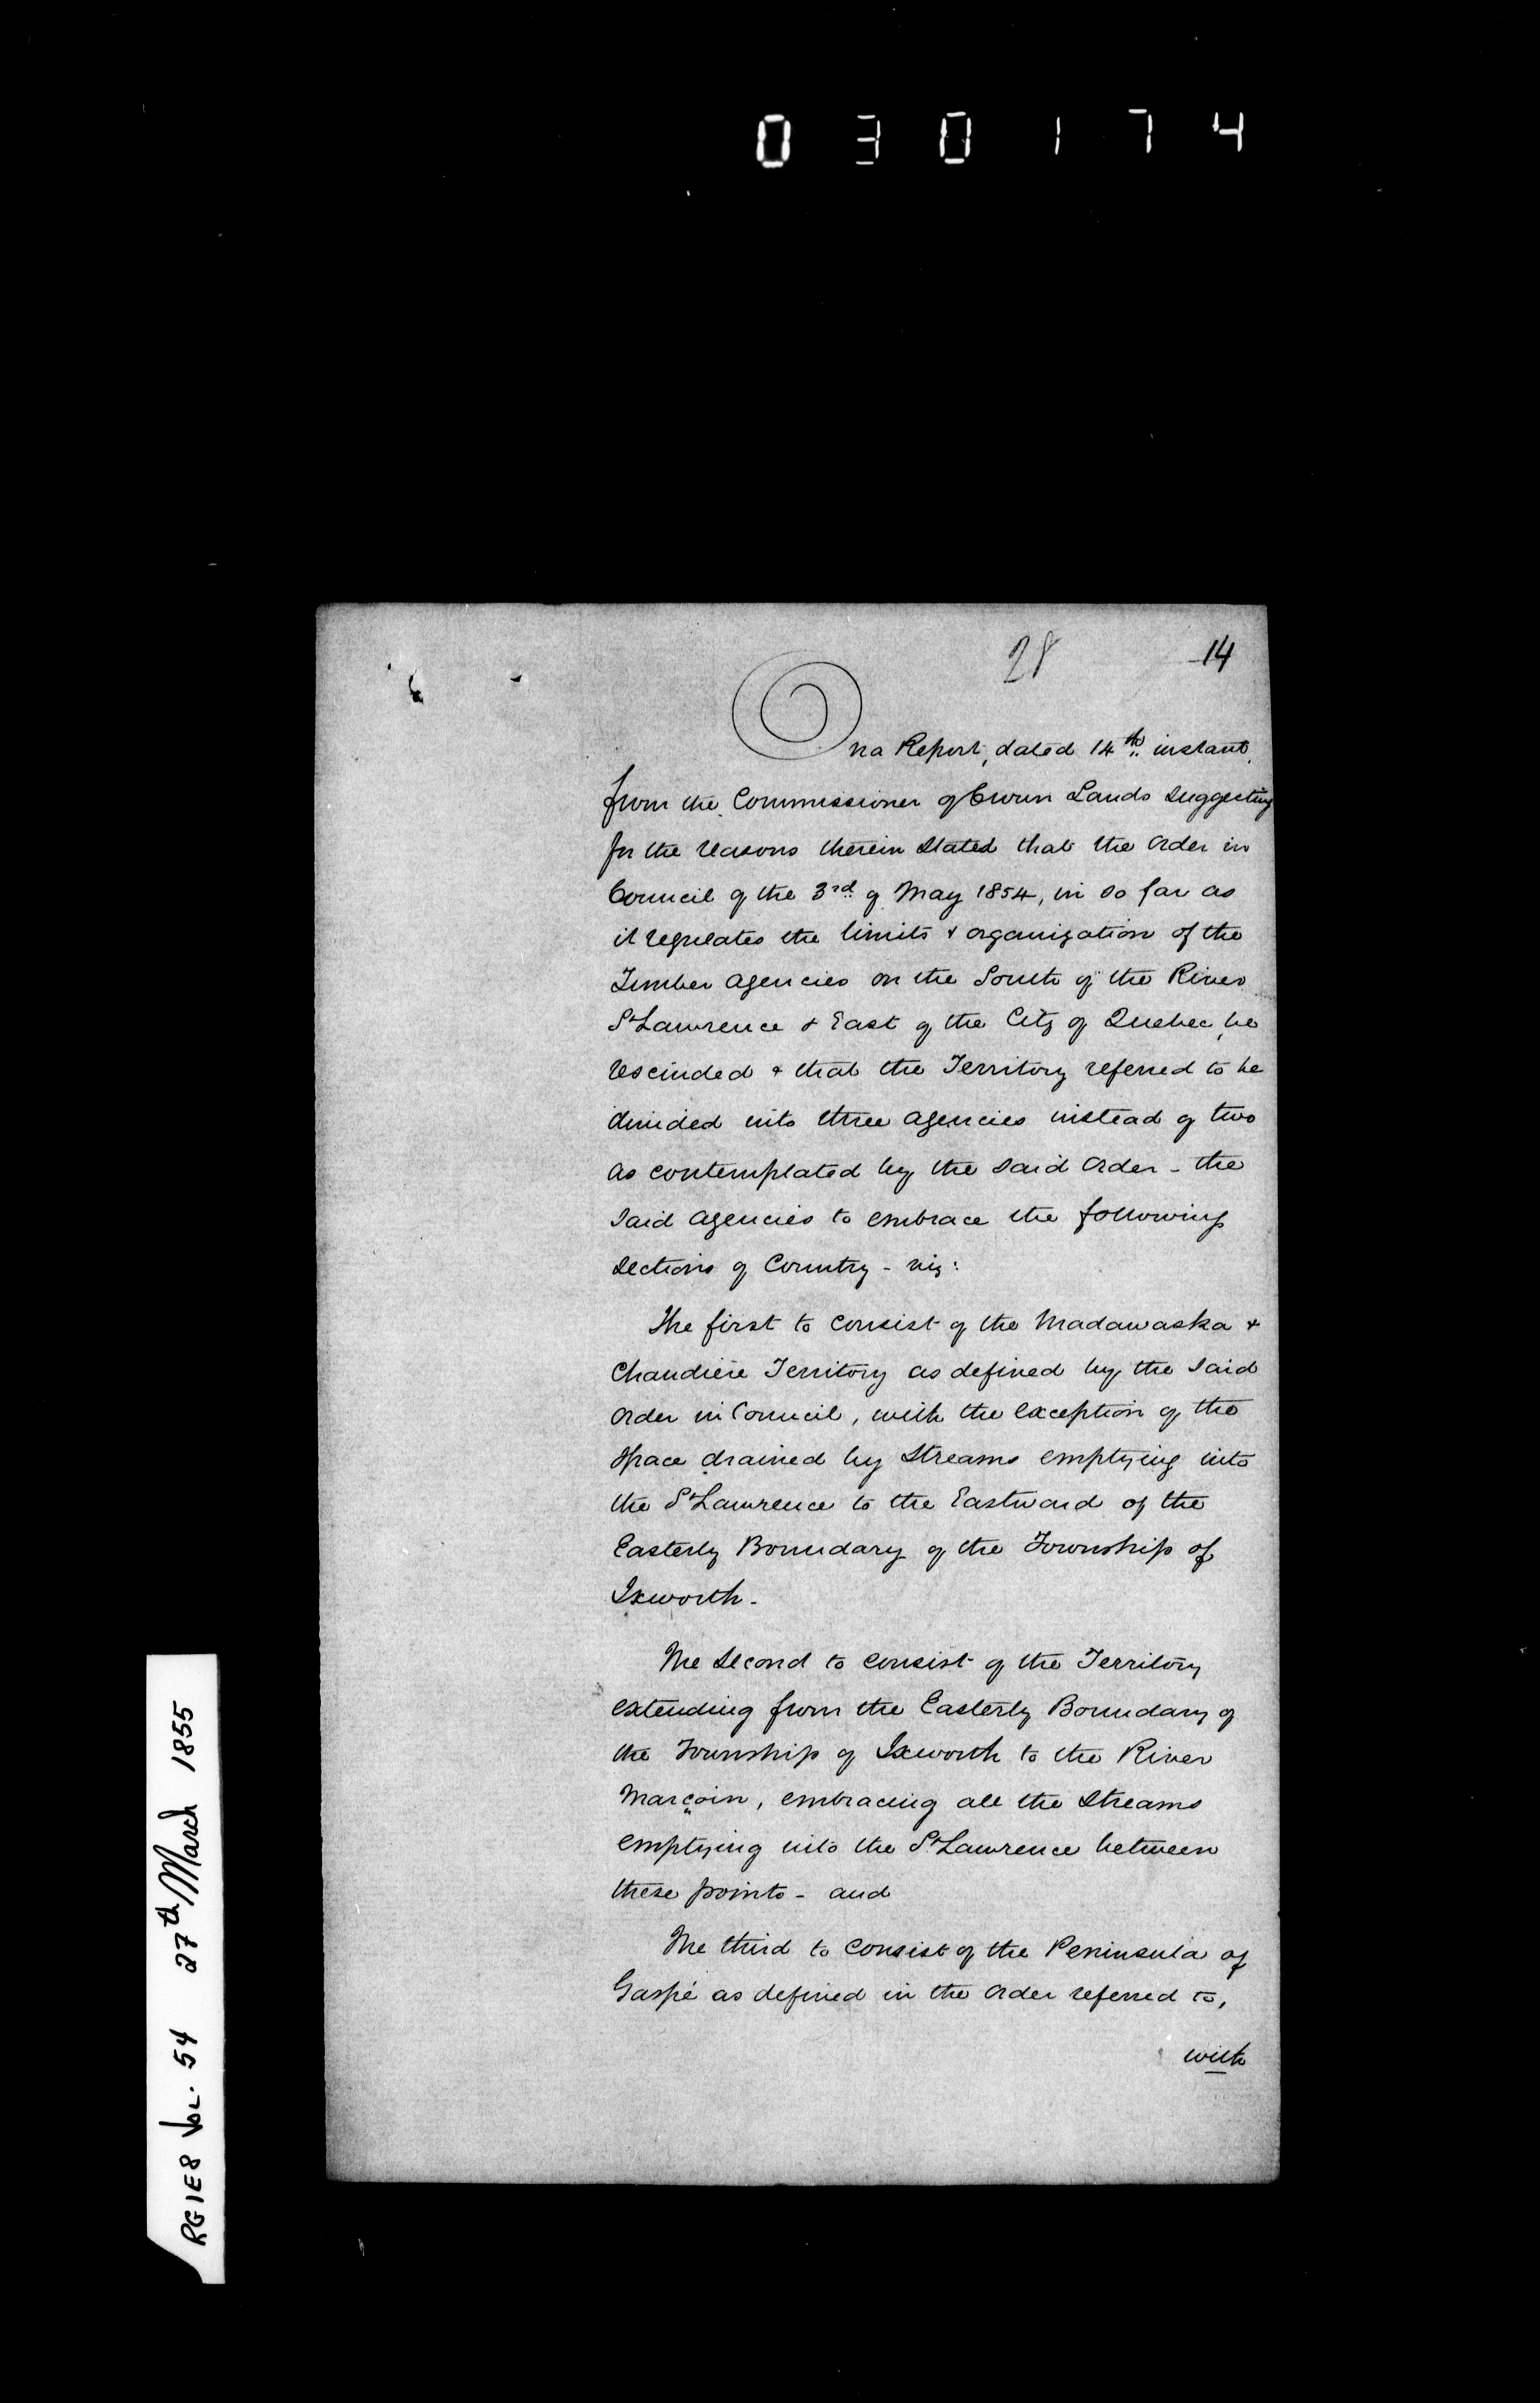 030174
28
14
On a Report, dated 14th instant,
from the Commissioner of Crown Lands suggesting
for the reasons therein stated that the Order in
Council of the 3rd of May 1854, in so far as
it regulates the limits & organization of the
Timber Agencies on the South of the River
St Lawrence & East of the City of Quebec, be
rescinded & that the Territory referred to be
divided into three Agencies instead of two
as contemplated by the said Order - the
said Agencies to embrace the following
sections of Country - viz:
The first to consist of the Madawaska &
Chaudière Territory as defined by the said
Order in Council, with the exception of the
space drained by Streams emptying into
the St Lawrence to the Eastward of the
Easterly Boundary of the Township of
Ixworth -
The second to consist of the Territory
extending from the Easterly Boundary of
the Township of Ixworth to the River
Marçoin, embracing all the Streams
emptying into the St Lawrence between
these points - and
The third to consist of the Peninsula of
Gaspé as defined in the Order referred to,
with
RG1E8 Vol. 54 27th March 1855